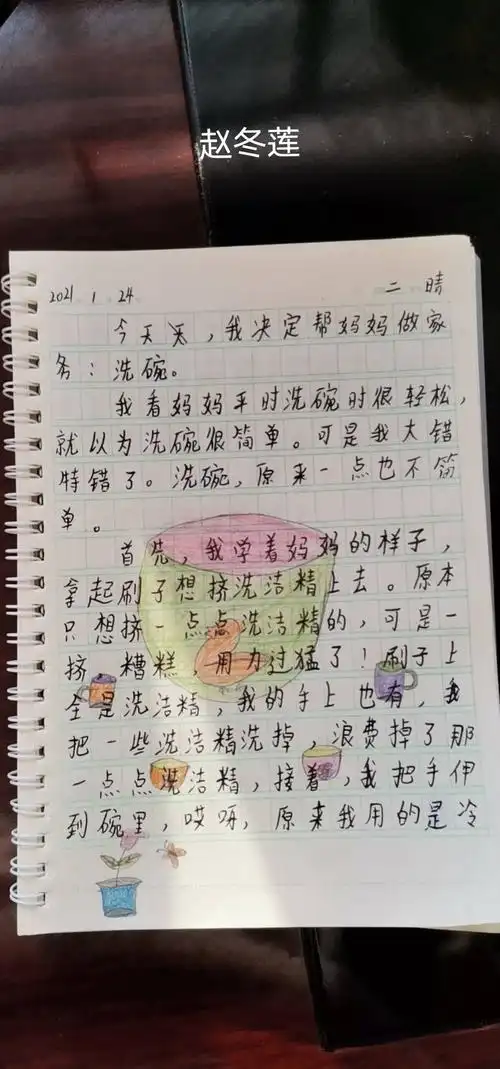 赵冬莲
2021 1 24 二 晴
今天天，我决定帮妈妈做家
务：洗碗。
我看妈妈平时洗碗时很轻松，
就以为洗碗很简单。可是我大错
特错了。洗碗，原来一点也不简
单。
首先，我学着妈妈的样子，
拿起刷子想挤洗洁精上去。原本
只想挤一点点洗洁精的，可是一
挤，糟糕，用力过猛了！刷子上
全是洗洁精，我的手上也有，我
把一些洗洁精洗掉，浪费掉了那
一点点洗洁精，接着，我把手伸
到碗里，哎呀，原来我用的是冷